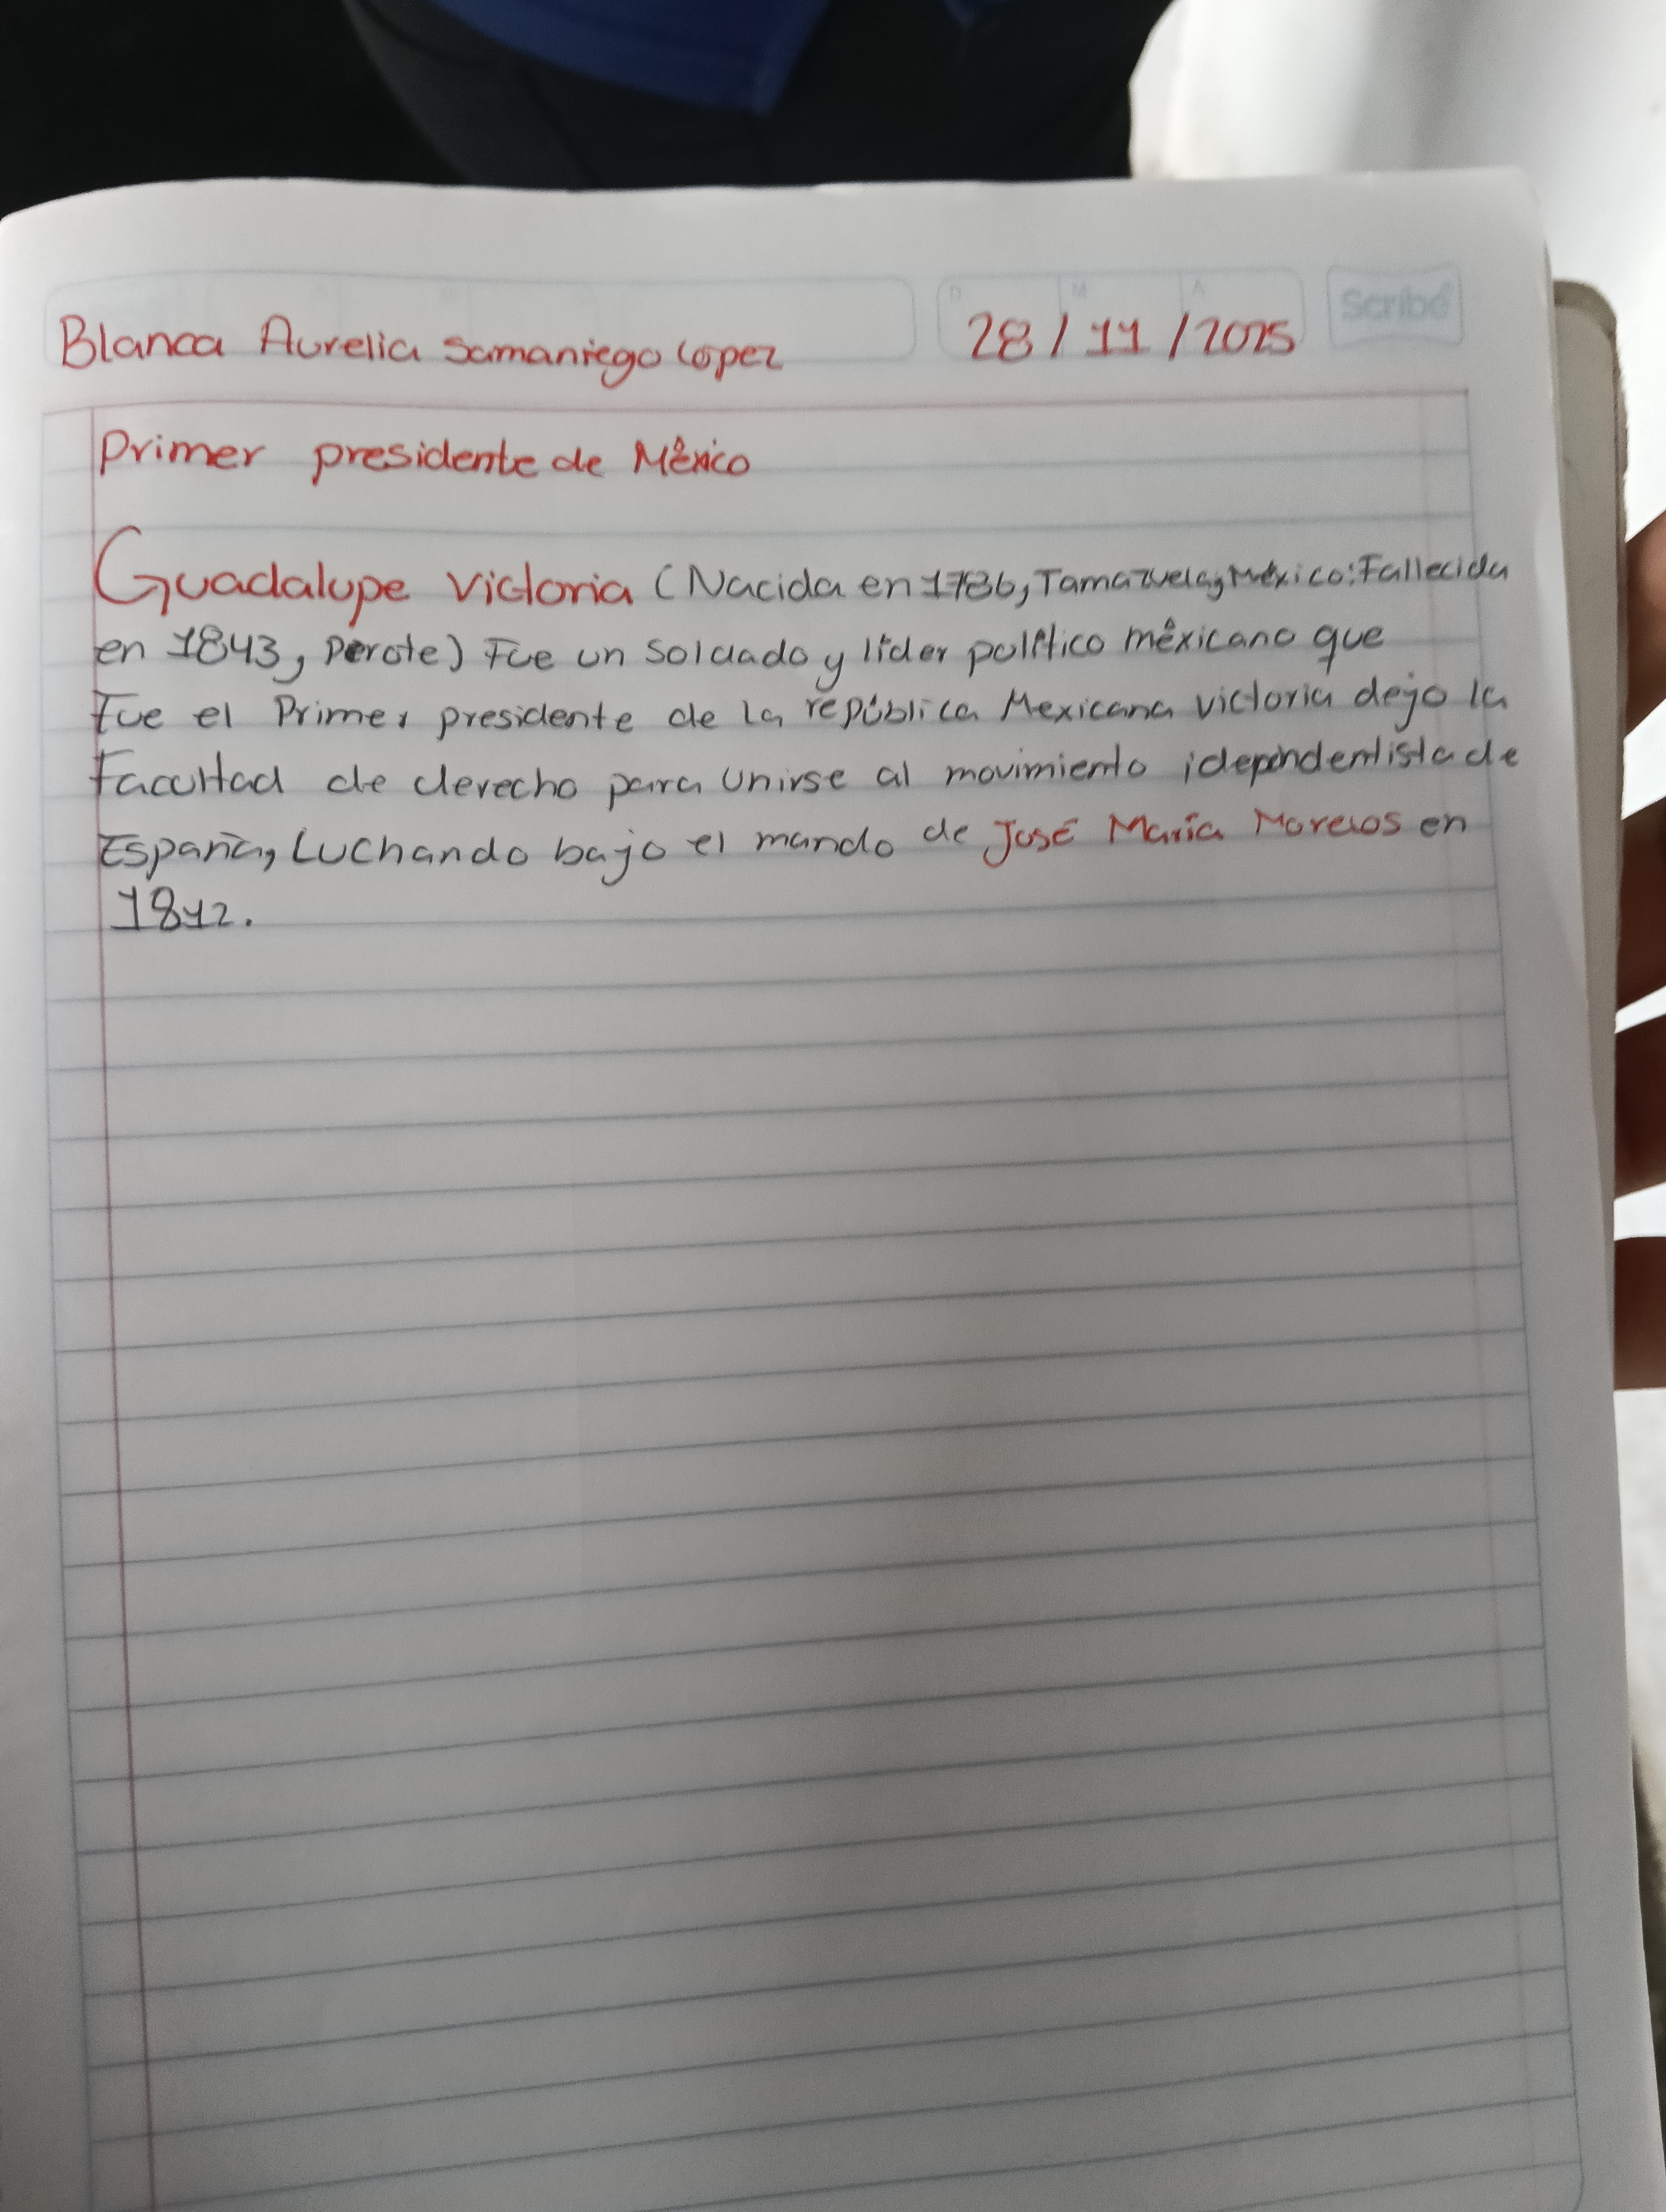 Scribe
D M A
Blanca Aurelia Samaniego Lopez 28/11/2025
Primer presidente de México
Guadalupe Victoria (Nacida en 1786, Tamazuela, México: Fallecida
en 1843, Perote) Fue un soldado y líder político méxicano que
Fue el Primer presidente de la república Mexicana victoria dejo la
Facultad de derecho para unirse al movimiento idependentista de
España, Luchando bajo el mando de José María Morelos en
1812.